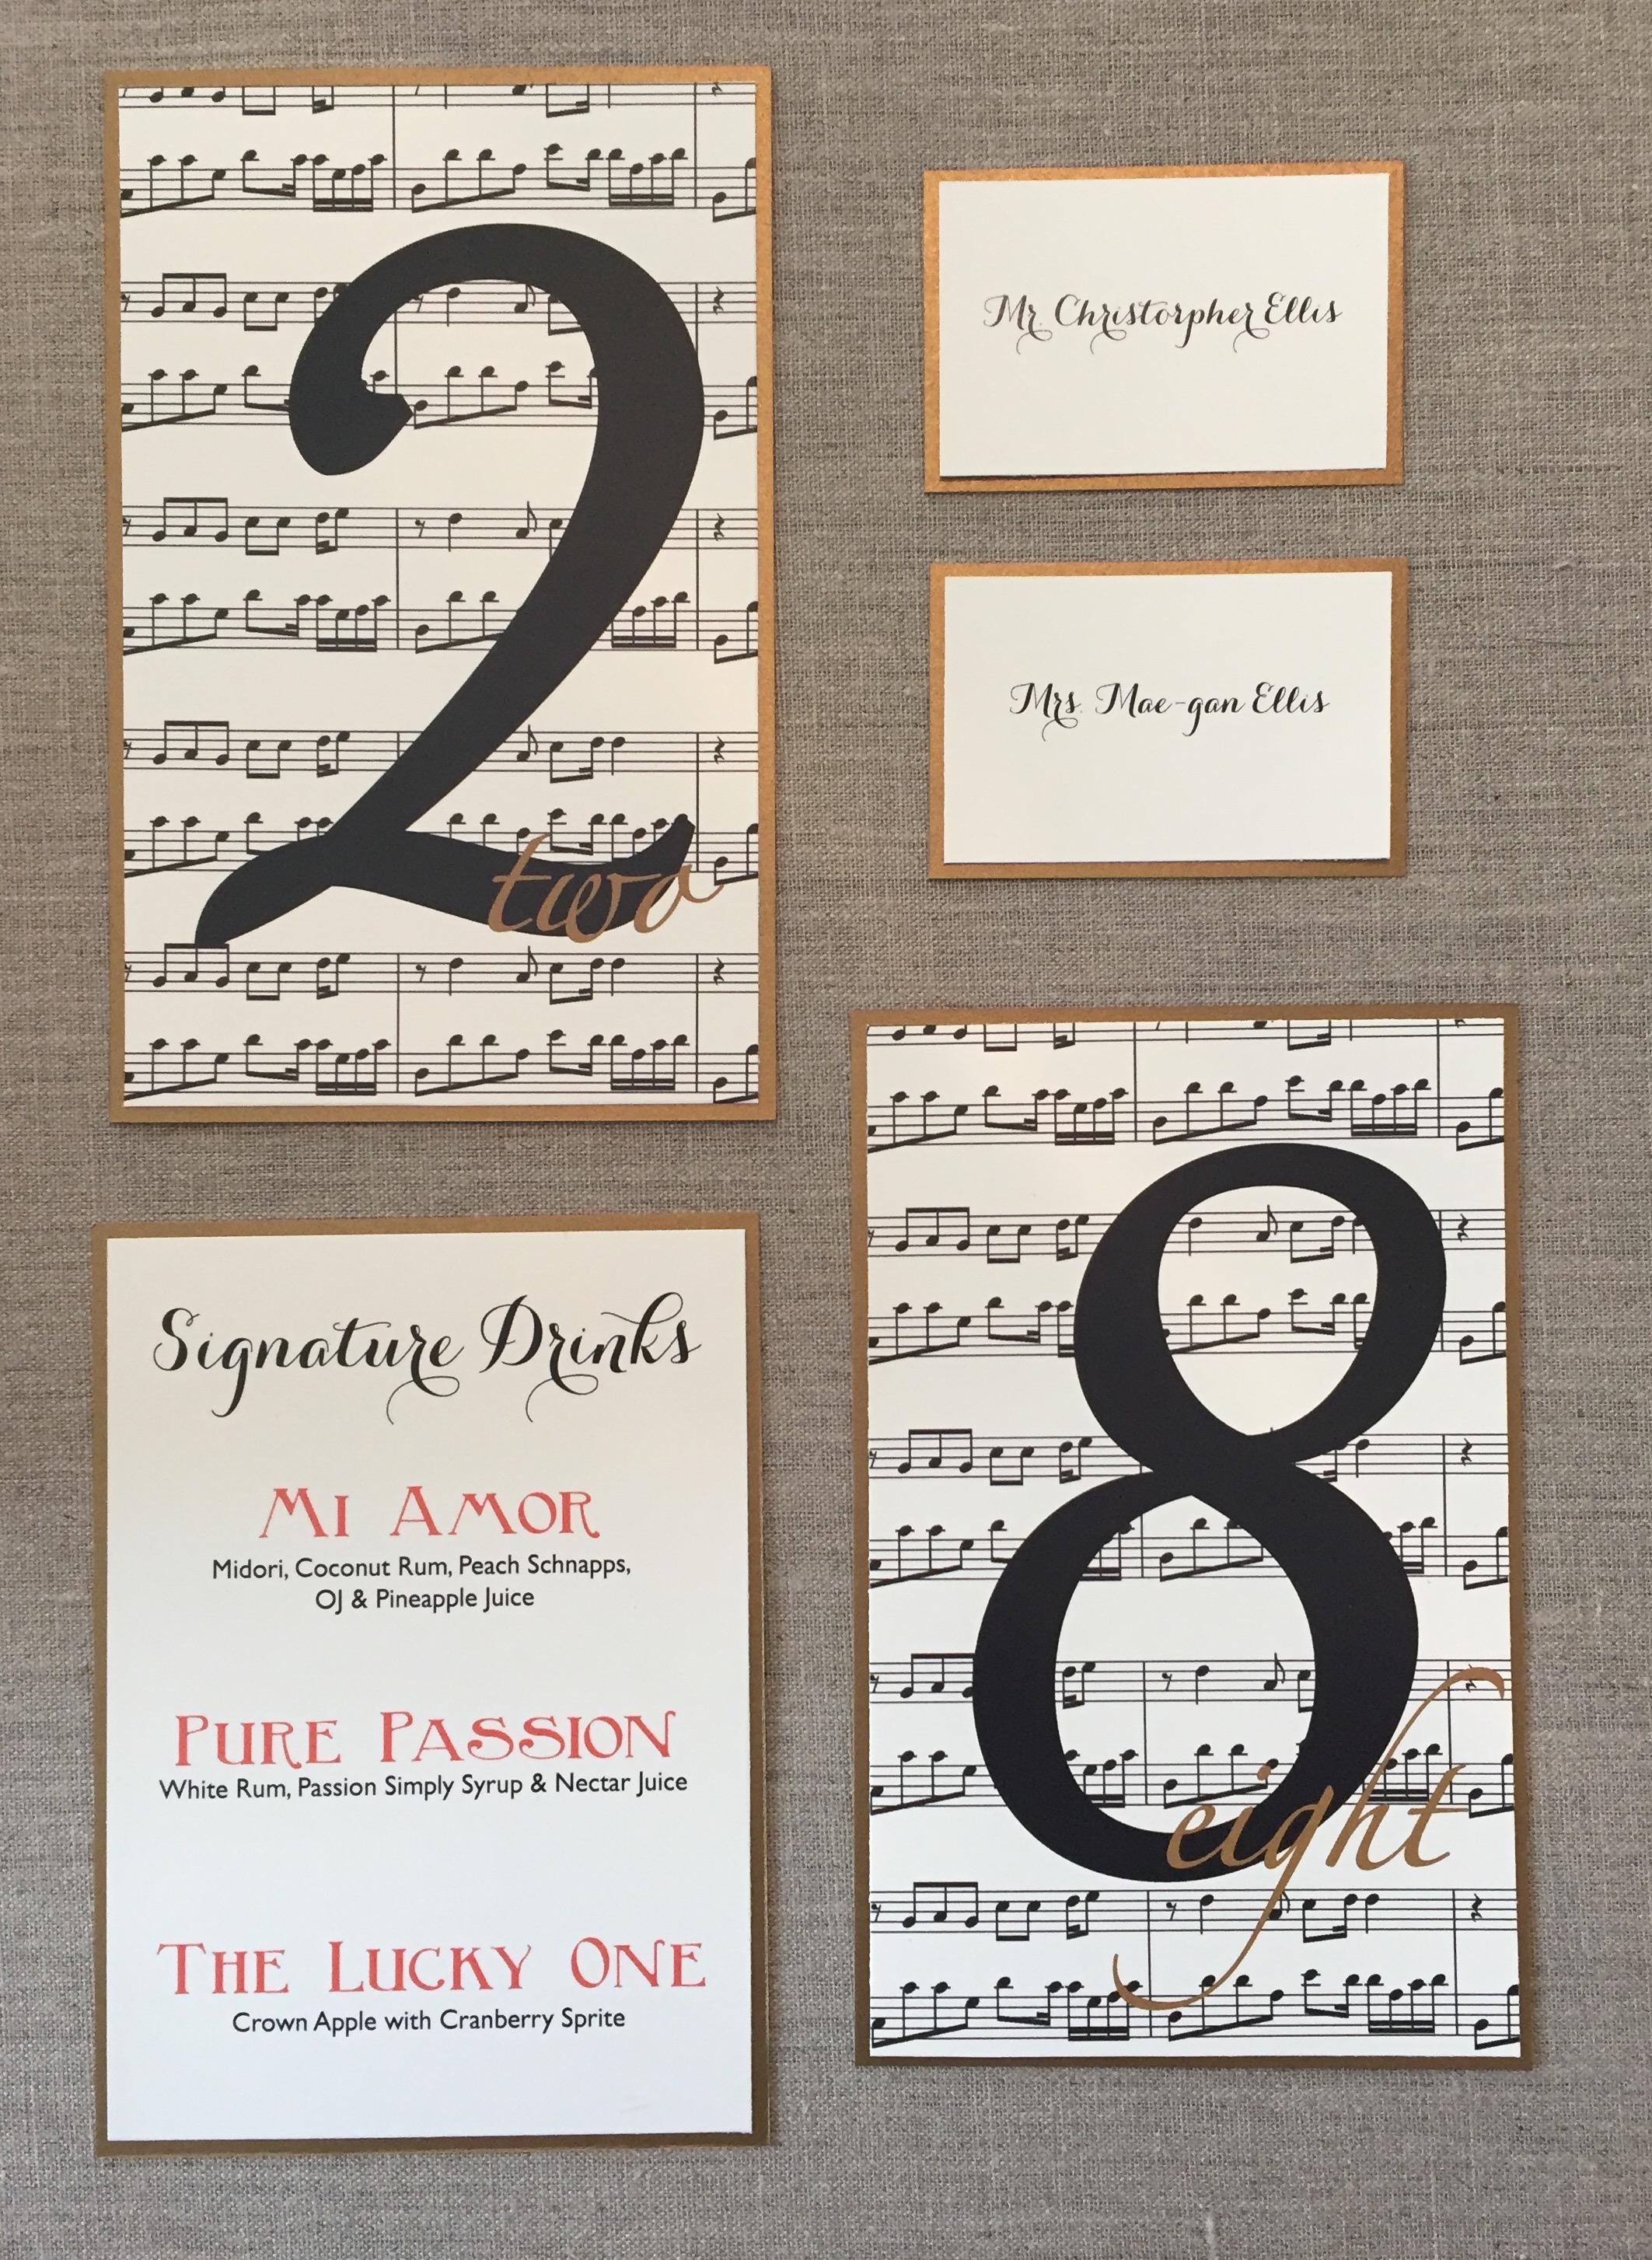 2
two
Mr. Christorpher Ellis
Mrs. Mae-gan Ellis
Signature Drinks
Mi Amor
Midori, Coconut Rum, Peach Schnapps,
OJ & Pineapple Juice
Pure Passion
White Rum, Passion Simply Syrup & Nectar Juice
The Lucky One
Crown Apple with Cranberry Sprite
8
eight